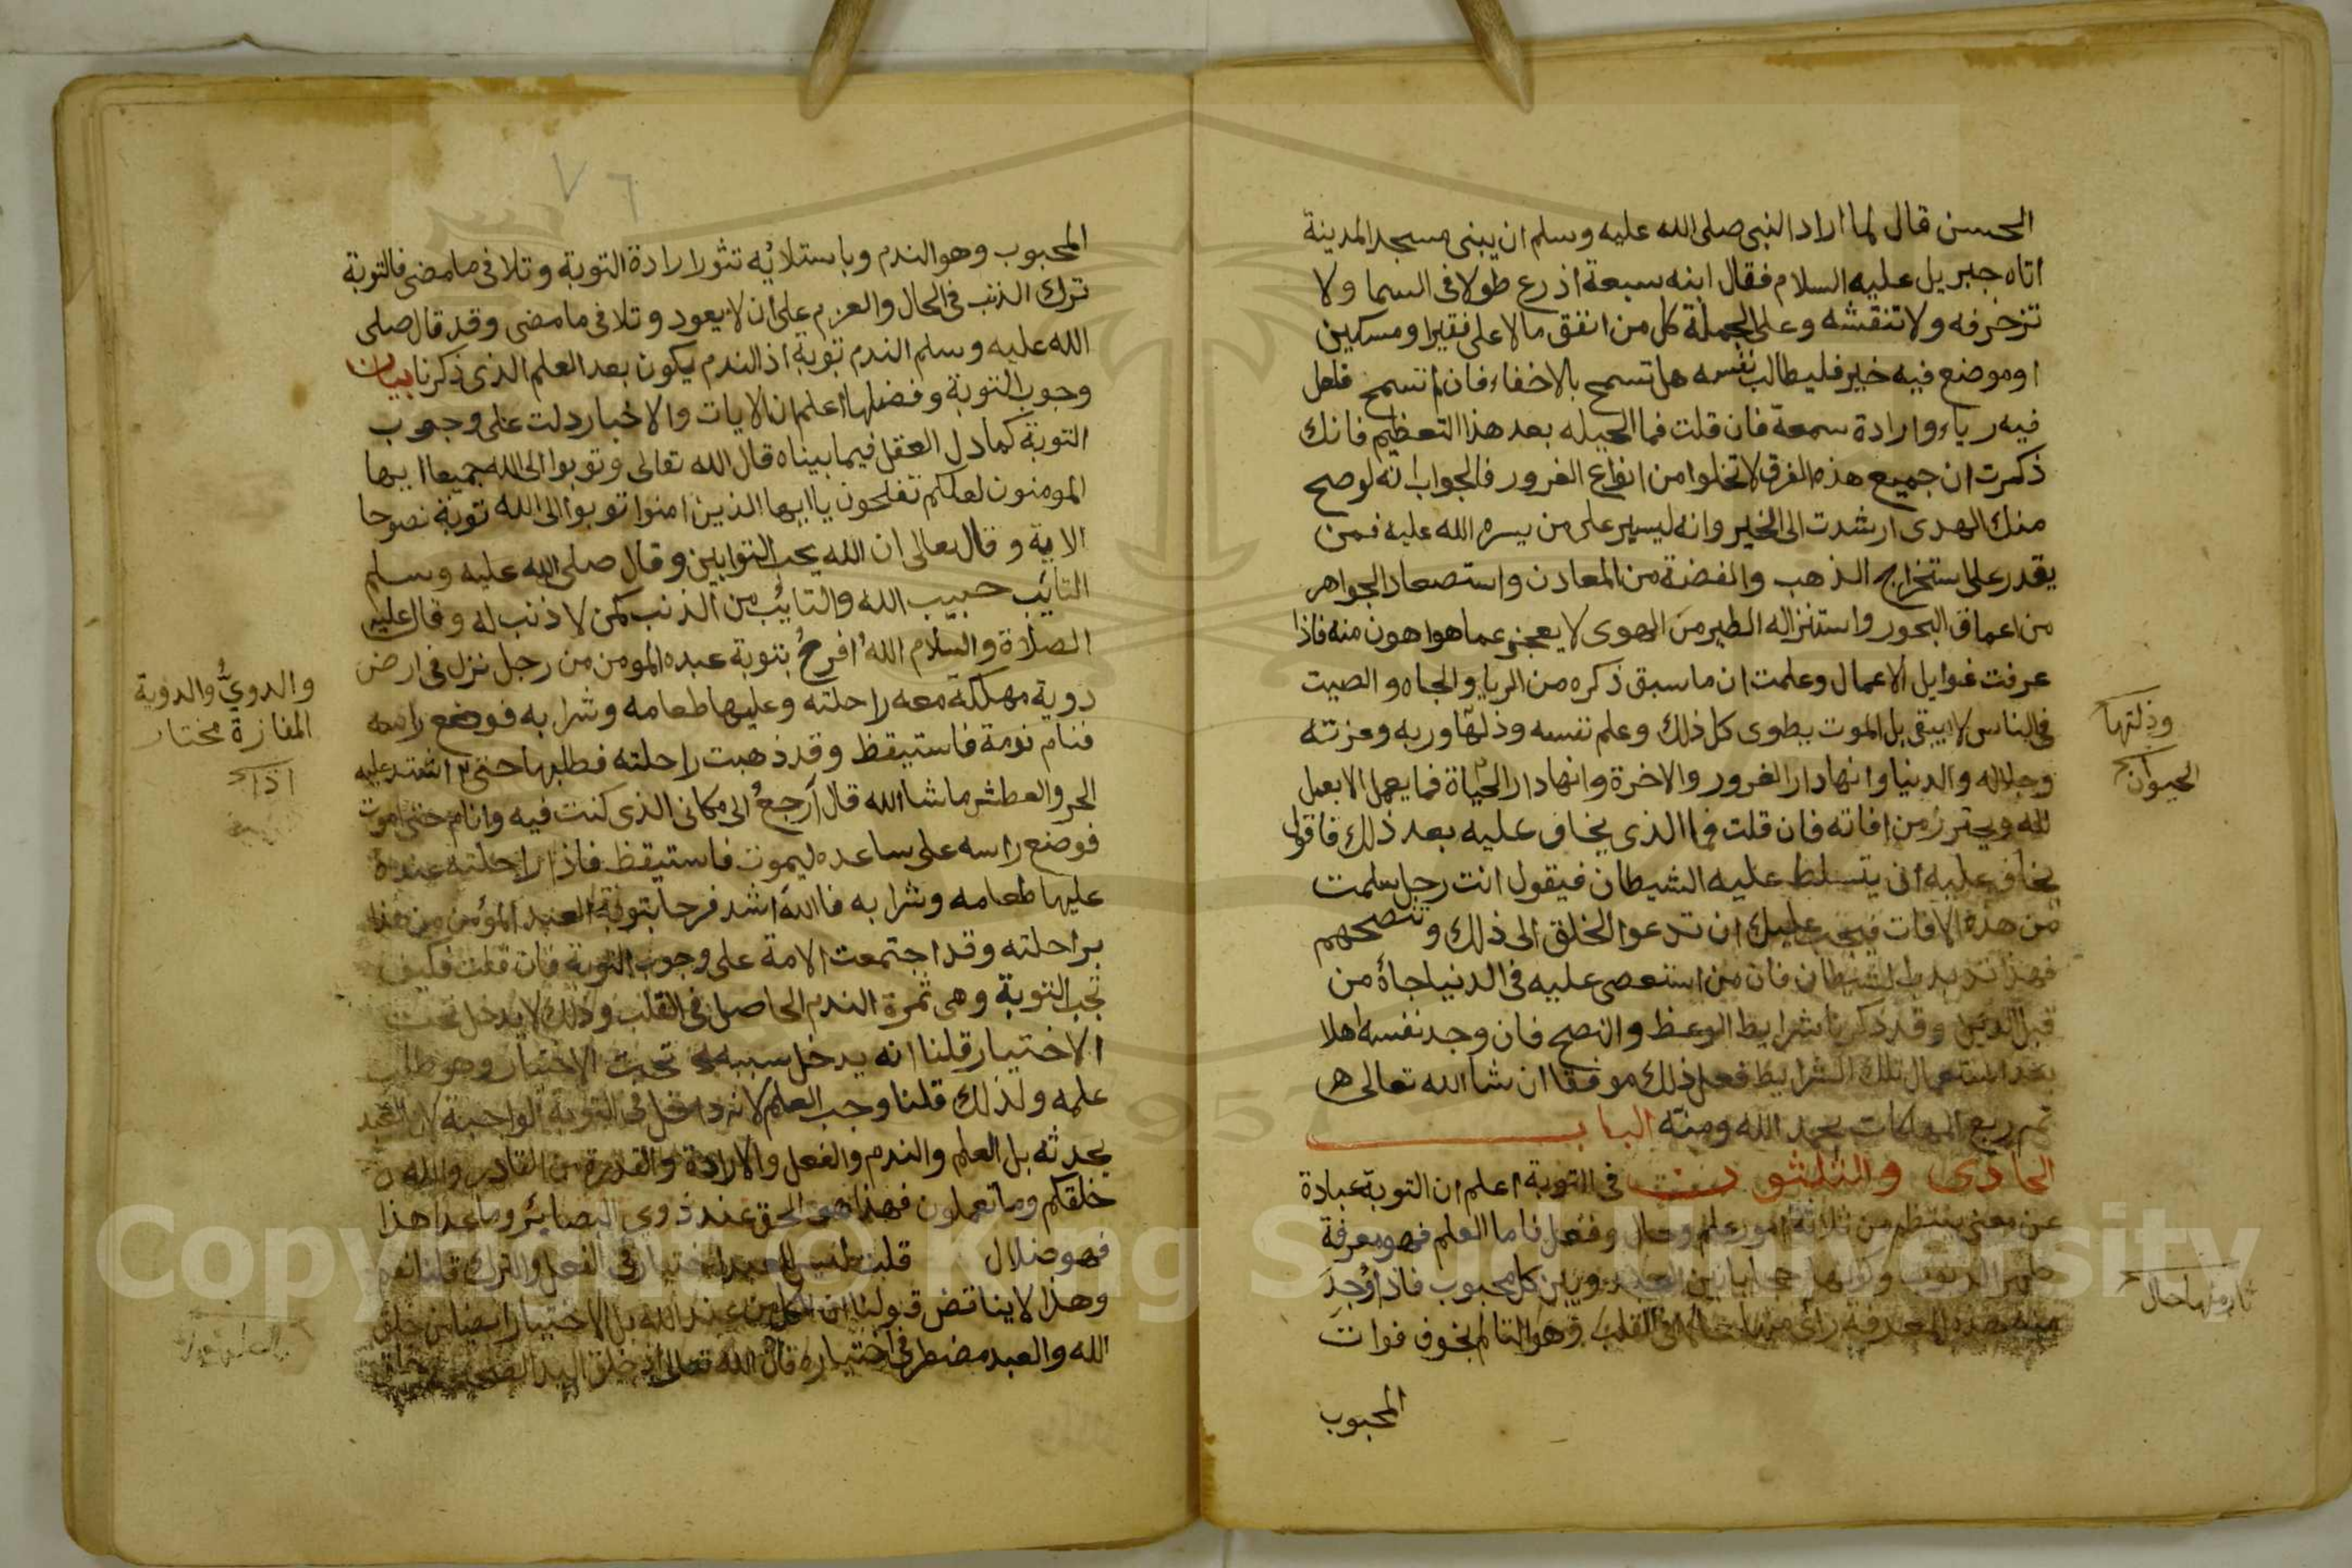 الحسن قال لما اراد النبي صلى الله عليه وسلم ان يبنى مسجد المدينة
اتاه جبريل عليه السلام فقال ابنه سبعة اذرع طولا فى السما ولا
تزخرفه ولا تنقشه وعلى الجملة كل من انفق مالا على فقيرا ومسكين
اوموضع فيه خير فليطالب نفسه هل تسمح بالاخفاء فان لم تسمح فلعل
فيه رياء وارادة سمعة فان قلت فما الحيله بعد هذا التعظيم فانك
ذكرت ان جميع هذه الفرق لا تخلوا من انواع الغرور فالجواب انه لو صح
منك الهدى ارشدت الى الخير وانه ليسير على من يسره الله عليه فمن
يقدر على استخراج الذهب والفضة من المعادن واستصعاد الجواهر
من اعماق البحور واستنزاله الطير من الهوى لا يعجز عما هو اهون منه فاذا
عرفت غوايل الاعمال وعلمت ان ما سبق ذكره من الريا والجاه والصيت
فى الناس لا يبقى بل الموت يطوى كل ذلك وعلم نفسه وذلتها وربه وعزته
وجلاله والدنيا وانها دار الغرور والاخرة وانها دار الحياة فما يعمل الا بعمل
لله ويحترز من افاته فان قلت فما الذى يخاف عليه بعد ذلك فاقول
يخاف عليه ان يتسلط عليه الشيطان فيقول انت رجل سلمت
من هذه الافات فيجب عليك ان تدعوا الخلق الى ذلك وتنصحهم
فهذا الشيطان فان من استعصى عليه فى الدنيا جاه من
قبل الدين وقد ذكرنا شرايط الوعظ والنصح فان وجد نفسه اهلا
بعد استعمال تلك الشرايط فعل ذلك موفقا ان شا الله تعالى
تم ربع المهلكات بحمد الله ومنه الباب
الحادى والثلثون فى التوبة اعلم ان التوبة عبارة
عن معنى ينتظم من ثلاثة امور علم وحال وفعل فاما العلم فهو معرفة
الذنوب وكونها حجابا بين العبد وبين كل محبوب فاذا وجد
منه هذه المعرفة رأى منها حاله فى القلب وهو التالم بخوف فوات
المحبوب
وذلتها
الحيوان
منها حال
٧٦
المحبوب وهو الندم وباستلائه تثور ارادة التوبة وتلافى ما مضى فالتوبة
ترك الذنب فى الحال والعزم على ان لا يعود وتلافى ما مضى وقد قال صلى
الله عليه وسلم الندم توبة اذ الندم يكون بعد العلم الذى ذكرنا بيان
وجوب التوبة وفضلها اعلم ان الايات والاخبار دلت على وجوب
التوبة كما دل العقل فيما بيناه قال الله تعالى وتوبوا الى الله جميعا ايها
المومنون لعلكم تفلحون يا ايها الذين امنوا توبوا الى الله توبة نصوحا
الاية وقال تعالى ان الله يحب التوابين وقال صلى الله عليه وسلم
التائب حبيب الله والتائب من الذنب كمن لا ذنب له وقال عليه
الصلاة والسلام الله افرح بتوبة عبده المومن من رجل نزل فى ارض
دوية مهلكة معه راحلته وعليها طعامه وشرابه فوضع راسه
فنام نومة فاستيقظ وقد ذهبت راحلته فطلبها حتى اشتد عليه
الحر والعطش ما شا الله قال ارجع الى مكانى الذى كنت فيه وانام حتى اموت
فوضع راسه على ساعده ليموت فاستيقظ فاذا راحلته عنده
عليها طعامه وشرابه فالله اشد فرحا بتوبة العبد المؤمن من هذا
براحلته وقد اجتمعت الامة على وجوب التوبة فان قلت فكيف
تجب التوبة وهى ثمرة الندم الحاصل فى القلب وذلك لا يدخل تحت
الاختيار قلنا انه يدخل سببه تحت الاختيار وهو طلب
علمه ولذلك قلنا وجب العلم لانه داخل فى التوبة الواجبة لان العبد
يحدثه بل العلم والندم والفعل والارادة والقدرة من القادر والله
خلقكم وما تعملون فهذا هو الحق عند ذوى البصائر وما عدا هذا
فهو ضلال قلت فليس للعبد اختيار فى الفعل والترك قلنا نعم
وهذا لا يناقض قولنا ان الكل من عند الله بل الاختيار ايضا من خلق
الله والعبد مضطر فى اختياره فان الله تعالى اذ خلق اليد الصحيحة
والدوي والدوية
المفازة مختار
اذا